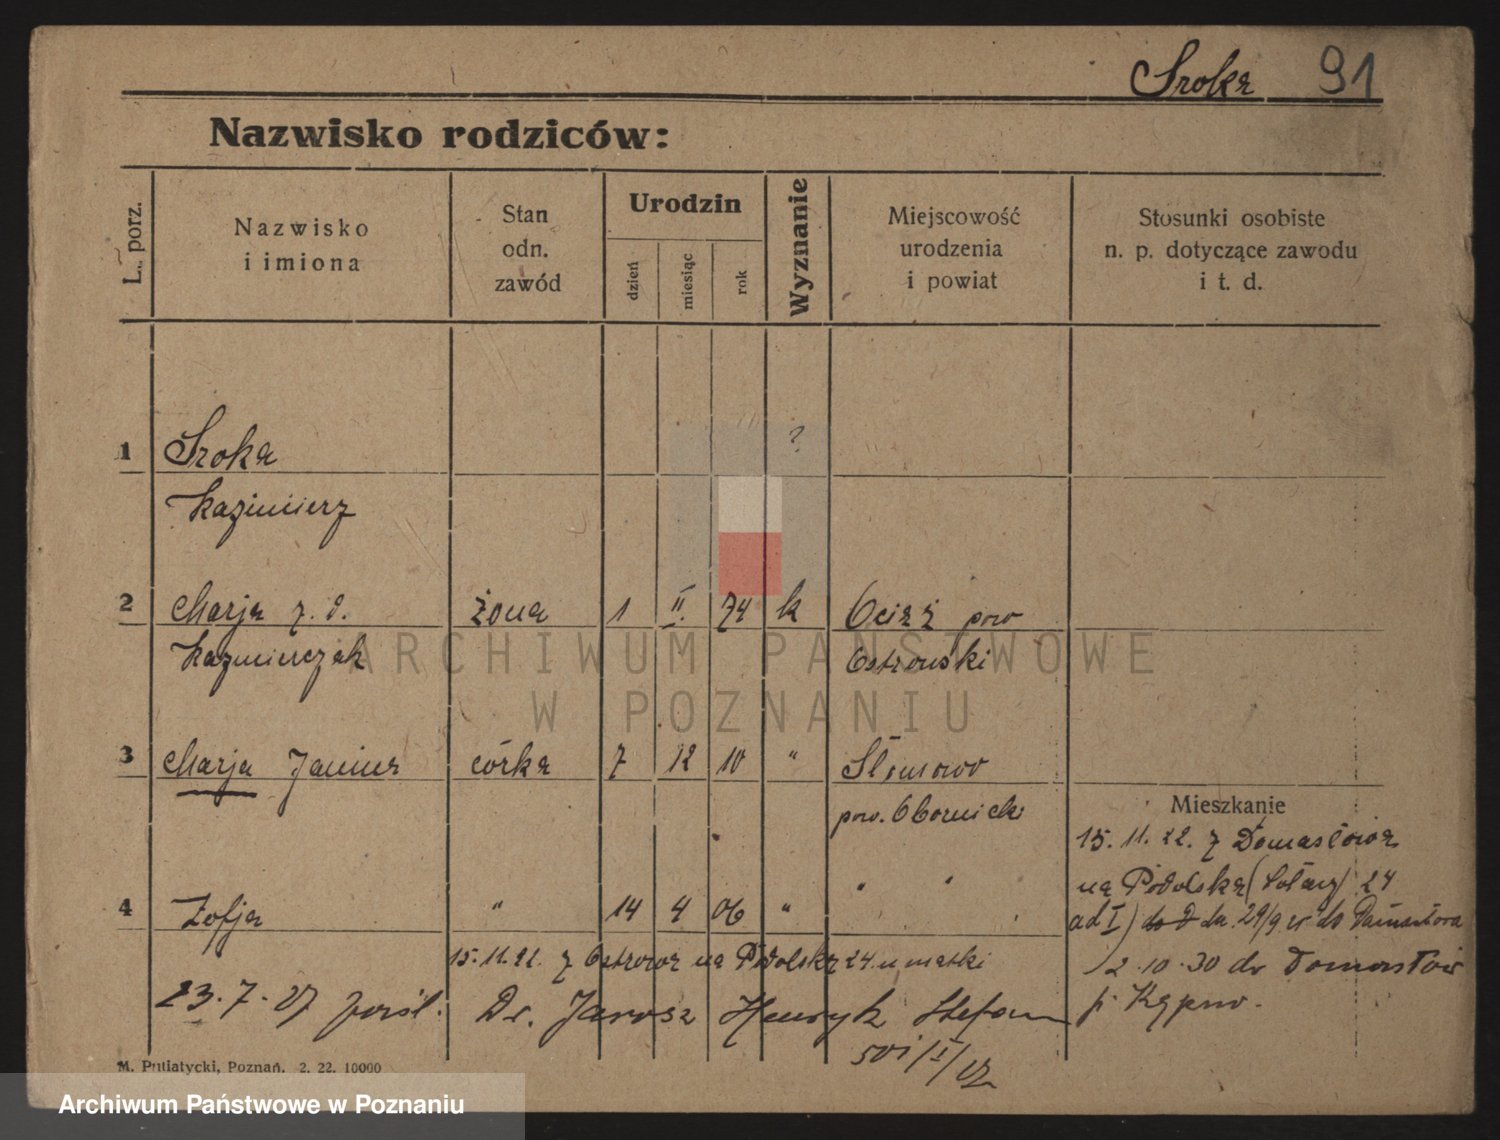 Sroka 91
Nazwisko rodziców:
L. porz.
Nazwisko
i imiona
Stan
odn.
zawód
Urodzin
dzień
miesiąc
rok
Wyznanie
Miejscowość
urodzenia
i powiat
Stosunki osobiste
n. p. dotyczące zawodu
i t. d.
1 Sroka ?
Kazimierz
2 Marja z. d. żona 1 II. 74 k Ociąż pow
Kaźmierczak Ostrowski
3 Marja Janina córka 7 12 10 " Słomowo
pow. Obornicki
Mieszkanie
15. 11. 22. z Domasłowa
na Podolską 24
4 Zofja " 14 4 06 " " "
ad I) 29/9
15. 11. 22. z Ostrowa na Podolską 24 u matki
2.10.30 do Domasłów
23. 7. 27 Dr. Jarosz Henryk Stefan
p. Kępno.
M. Putiatycki, Poznań. 2. 22. 10000
ARCHIWUM PAŃSTWOWE
W POZNANIU
Archiwum Państwowe w Poznaniu